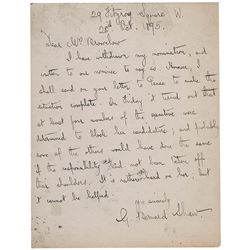 29 Fitzroy Square W.
28th Oct. 1895.
Dear Mr Brownlow
I have withdrawn my nomination, and
intend to our nominee to say so. Hence, I
shall send on your letter to Pease to make the
situation complete. On Friday it turned out that
at least four members of the executive were
determined to block his candidature; and probably
some of the others would have done the same
if the responsibility had not been taken off
their shoulders. It is rather hard on her, but
it cannot be helped.
yrs sincerely
G. Bernard Shaw